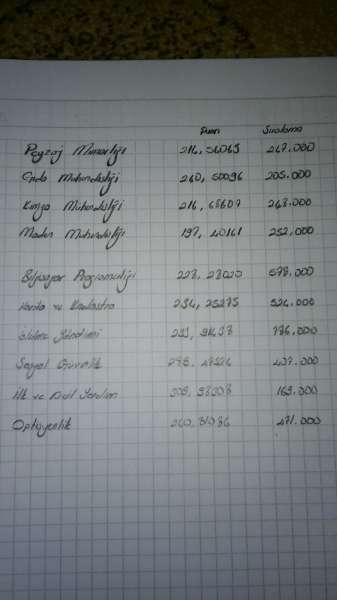 Puan Sıralama
Peyzaj Mimarlığı 214, 56063 247.000
Gıda Mühendisliği 240, 50096 205.000
Kimya Mühendisliği 216, 68607 268.000
Maden Mühendisliği 197, 40161 252,000
Bilgisayar Programcılığı 228, 28020 578,000
Harita ve Kadastro 234, 25275 526.000
İşletme Yönetimi 776,000
Sosyal Güvenlik 437.000
İlk ve Acil Yardım 163.000
Optisyenlik 471.000